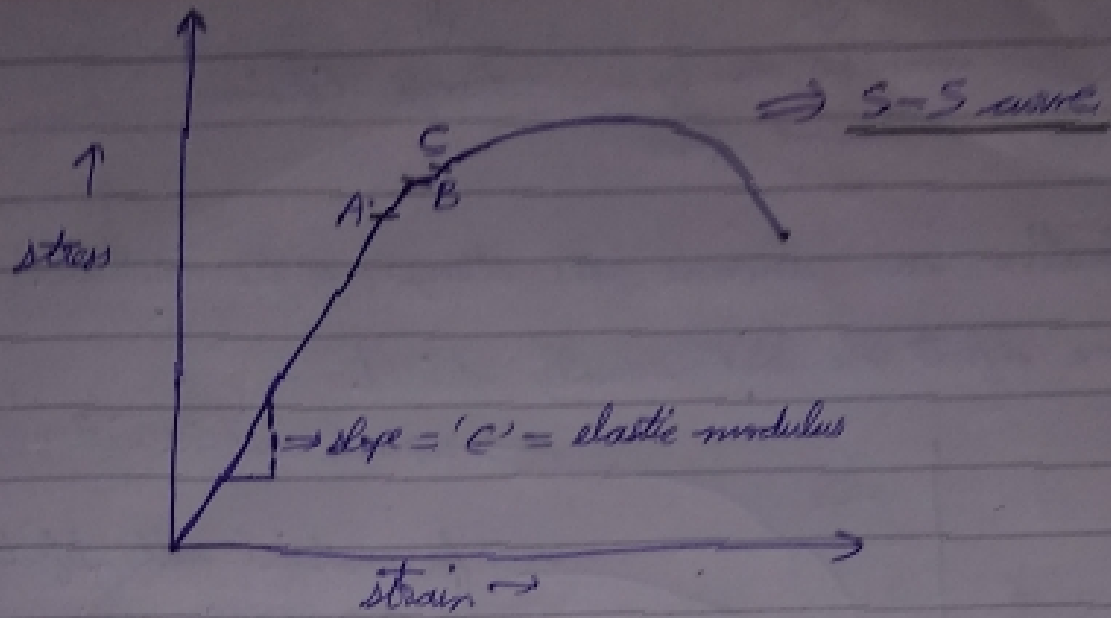 ⇒ S-S curve
C
↑
B
A
stress
⇒ slope = 'C' = elastic modulus
strain →